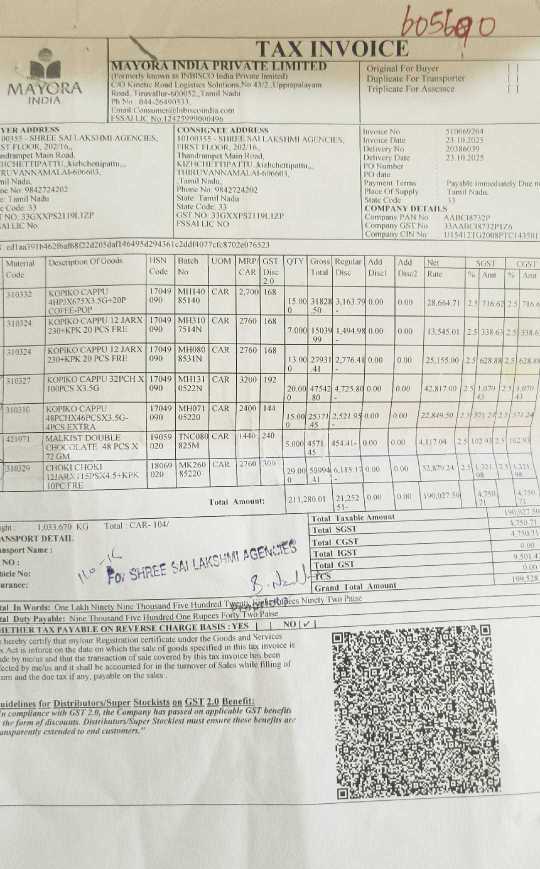 605690
TAX INVOICE
MAYORA
INDIA
MAYORA INDIA PRIVATE LIMITED
(Formerly known as INBISCO India Private limited)
C/O Kinetic Road Logistics Solutions,No 43/2, Upprapalayam
Road, Tiruvallur-600052,,Tamil Nadu
Ph No : 044-26490333,
Email Consumer@inbiscoindia.com
FSSAI LIC No.12425999000496
Original For Buyer
Duplicate For Transporter
Triplicate For Assesce
YER ADDRESS
100355 - SHREE SAI LAKSHMI AGENCIES,
RST FLOOR, 202/16,,
handrampet Main Road,
ZHICHETTIPATTU,,kizhchettipattu,,,
IRUVANNAMALAI-606603,
mil Nadu,
one No: 9842724202
ate: Tamil Nadu
e Code: 33
T NO: 33GXXPS2119L1ZP
SAI LIC No.
CONSIGNEE ADDRESS
10100355 - SHREE SAI LAKSHMI AGENCIES,
FIRST FLOOR, 202/16,,
Thandrampet Main Road,
KIZHICHETTIPATTU,,kizhchettipattu,,,
THIRUVANNAMALAI-606603,
,Tamil Nadu,
Phone No: 9842724202
State: Tamil Nadu
State Code: 33
GST NO: 33GXXPS2119L1ZP
FSSAI LIC NO
Invoice No 510069204
Invoice Date 23.10.2025
Delivery No 20386039
Delivery Date 23.10.2025
PO Number
PO date
Payment Terms Payable immediately Due n
Place Of Supply Tamil Nadu
State Code 33
COMPANY DETAILS
Company PAN No AABCI8732P
Company GST No 33AABCI8732P1Z6
Company CIN No
Material Code Description Of Goods HSN Code Batch No UOM MRP/CAR GST Disc 2.0 QTY Gross Total Regular Disc Add Disc1 Add Disc2 Net Rate SGST % Amt CGST % Amt
310332 KOPIKO CAPPU 4HPJX675X3.5G+20P COFEE-POP 17049090 MH14085140 CAR 2,700 168 15.000 3182850 3,163.79- 0.00 0.00 28,664.71 2.5 716.62 2.5 716.6
310324 KOPIKO CAPPU 12 JARX 230+KPK 20 PCS FRE 17049090 MH3107514N CAR 2760 168 7.000 1503999 1,494.98- 0.00 0.00 13,545.01 2.5 338.63 2.5 338.63
310324 KOPIKO CAPPU 12 JARX 230+KPK 20 PCS FRE 17049090 MH0808531N CAR 2760 168 13.000 2793141 2,776.41- 0.00 0.00 25,155.00 2.5 628.88 2.5 628.88
310327 KOPIKO CAPPU 32PCH X 100PCS X3.5G 17049090 MH1310522N CAR 3200 192 20.000 4754280 4,725.80- 0.00 0.00 42,817.00 2.5 1,07043 2.5 1,07043
310310 KOPIKO CAPPU 48PCHX46PCSX3.5G-4PCS EXTRA 17049090 MH07105220 CAR 2400 144 15.000 2537145 2,521.95- 0.00 0.00 22,849.50 2.5 571.24 2.5 571.24
421071 MALKIST DOUBLE CHOCOLATE 48 PCS X 72 GM 19059020 TNC080825M CAR 1440 240 5.000 457145 454.41- 0.00 0.00 4,117.04 2.5 102.93 2.5 102.93
310329 CHOKI CHOKI 12JARX115PSX4.5+KPK 10PC FRE 18069020 MK26085220 CAR 2760 309 29.000 5899441 0.00 0.00 52,879.24 2.5 1,32198 2.5 1,32198
Total Amount: 211,280.01 21,25251- 0.00 0.00 190,027.50 4,75071 4,75071
ght : 1,033.670 KG Total : CAR- 104/
ANSPORT DETAIL
ansport Name :
NO :
hicle No:
surance:
For SHREE SAI LAKSHMI AGENCIES
Total Taxable Amount 190,027.50
Total SGST 4,750.71
Total CGST 4,750.71
Total IGST 0.00
Total GST 9,501.42
TCS 0.00
Grand Total Amount 199,528.
tal In Words: One Lakh Ninety Nine Thousand Five Hundred Twenty Rupees Ninety Two Paise
tal Duty Payable: Nine Thousand Five Hundred One Rupees Forty Two Paise
HETHER TAX PAYABLE ON REVERSE CHARGE BASIS : YES | | NO [✓]
hereby certify that my/our Registration certificate under the Goods and Services
x Act is inforce on the date on which the sale of goods specified in this tax invoice is
de by me/us and that the transaction of sale covered by this tax invoice has been
fected by me/us and it shall be accounted for in the turnover of Sales while filling of
urn and the due tax if any, payable on the sales
uidelines for Distributors/Super Stockists on GST 2.0 Benefit:
In compliance with GST 2.0, the Company has passed on applicable GST benefits
the form of discounts. Distributors/Super Stockiest must ensure these benefits are
ansparently extended to end customers."